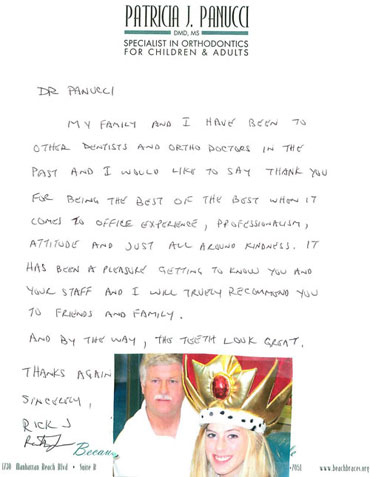 PATRICIA J. PANUCCI
DMD, MS
SPECIALIST IN ORTHODONTICS
FOR CHILDREN & ADULTS
DR PANUCCI
MY FAMILY AND I HAVE BEEN TO
OTHER DENTISTS AND ORTHO DOCTORS IN THE
PAST AND I WOULD LIKE TO SAY THANK YOU
FOR BEING THE BEST OF THE BEST WHEN IT
COMES TO OFFICE EXPERIENCE, PROFESSIONALISM,
ATTITUDE AND JUST ALL AROUND KINDNESS. IT
HAS BEEN A PLEASURE GETTING TO KNOW YOU AND
YOUR STAFF AND I WILL TRUELY RECOMMEND YOU
TO FRIENDS AND FAMILY.
AND BY THE WAY, THE TEETH LOOK GREAT.
THANKS AGAIN
SINCERELY,
RICK J
Becau
1730 Manhattan Beach Blvd • Suite B -7051 www.beachbraces.org